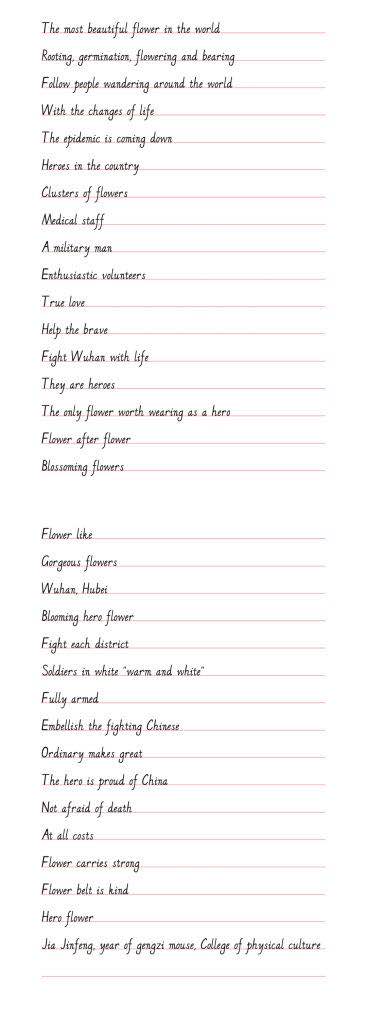 The most beautiful flower in the world
Rooting, germination, flowering and bearing
Follow people wandering around the world
With the changes of life
The epidemic is coming down
Heroes in the country
Clusters of flowers
Medical staff
A military man
Enthusiastic volunteers
True love
Help the brave
Fight Wuhan with life
They are heroes
The only flower worth wearing as a hero
Flower after flower
Blossoming flowers
Flower like
Gorgeous flowers
Wuhan, Hubei
Blooming hero flower
Fight each district
Soldiers in white "warm and white"
Fully armed
Embellish the fighting Chinese
Ordinary makes great
The hero is proud of China
Not afraid of death
At all costs
Flower carries strong
Flower belt is kind
Hero flower
Jia Jinfeng, year of gengzi mouse, College of physical culture